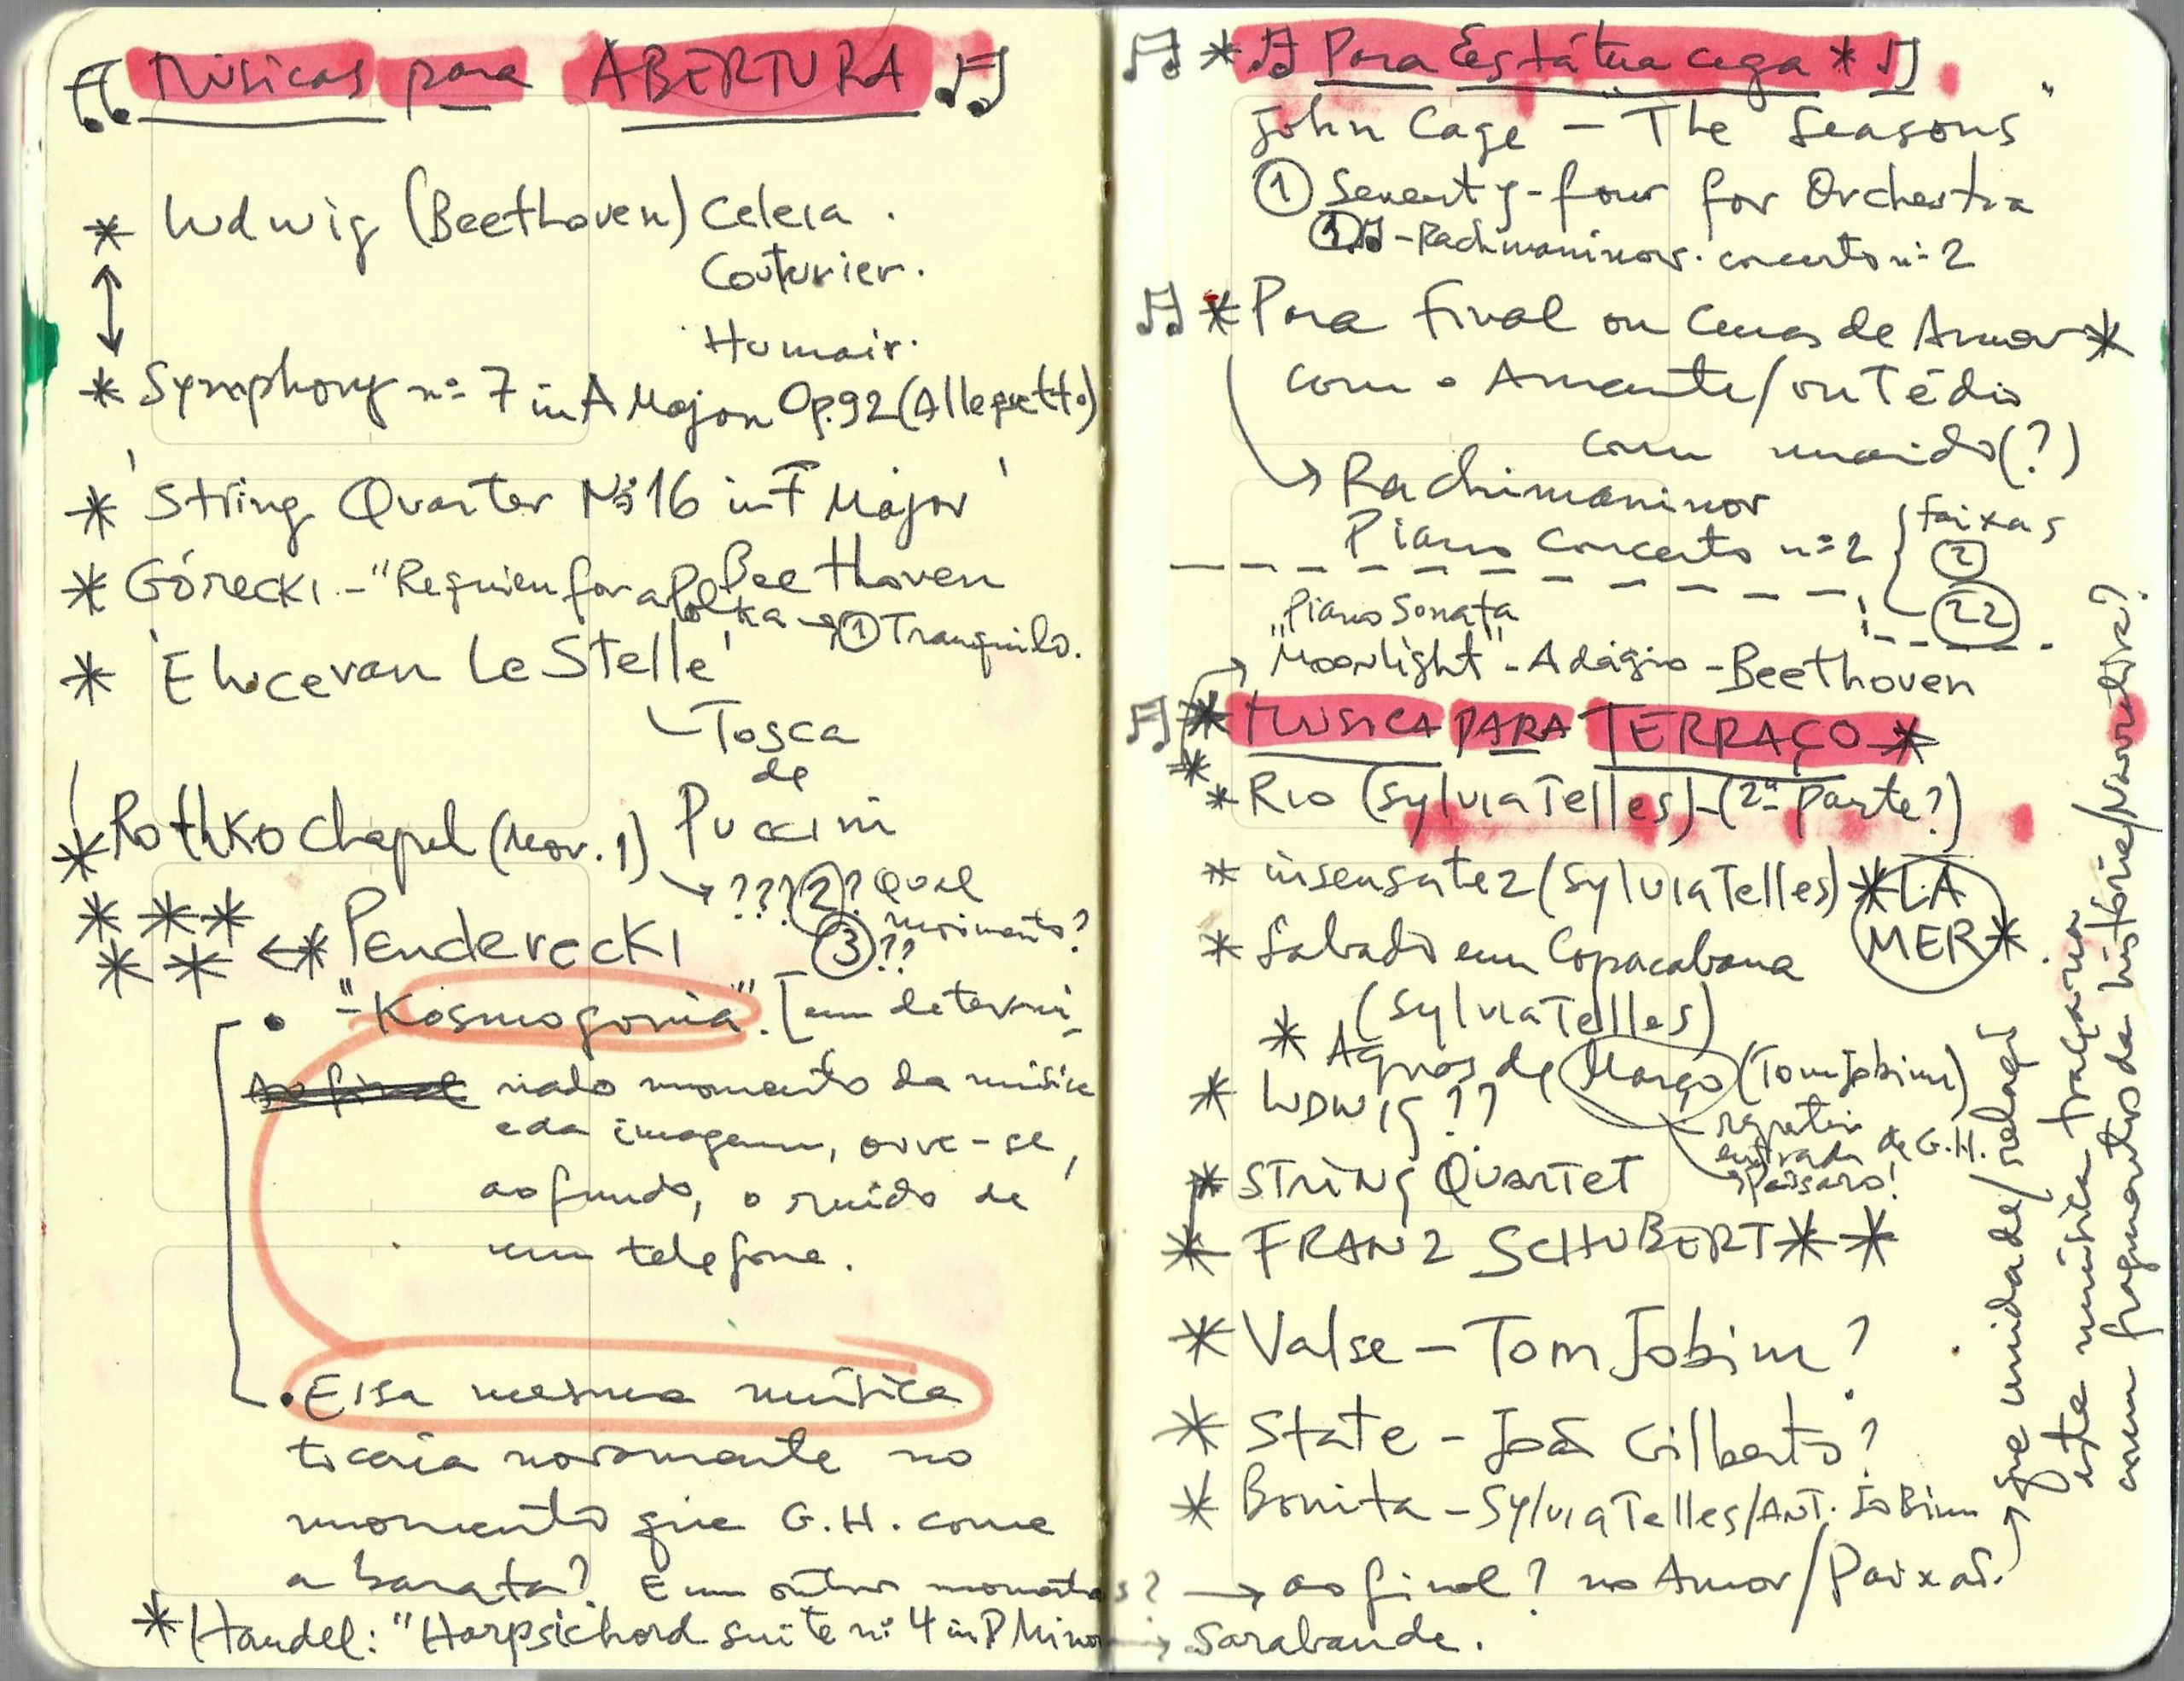 Músicas para ABERTURA
* Ludwig (Beethoven) Celeia.
Couturier.
Humair.
* Symphony nº 7 in A Major Op.92 (Allegretto)
* 'String Quarter Nº 16 in F Major'
Beethoven
* Górecki - "Requien for a Polka → ① Tranquilo.
* 'E lucevan Le Stelle'
Tosca
de
Puccini
* Rothko Chapel (Mov. 1)
→ ???②? Qual
movimento?
③??
*** ** ←* Penderecki
• "-Kosmogonia". [em determi-
Ao final nado momento da música
e da imagem, ouve-se,
ao fundo, o ruído de
um telefone.
• Essa mesma música
tocaria novamente no
momento que G.H. come
a barata? E em outros momentos?
* Handel: "Harpsichord suite nº 4 in D Minor
→ Sarabande.
* Para Estátua cega *
John Cage - The Seasons"
① Seventy-four for Orchestra
① - Rachmaninov. concerto nº 2
* Para Final ou Cenas de Amor *
com o Amante/ou Tédio
com marido(?)
→ Rachimaninov
Piano Concerto nº 2 { faixas
②
㉒
"Piano Sonata
Moonlight" - Adágio - Beethoven
* MÚSICA PARA TERRAÇO *
* Rio (Sylvia Telles) - (2ª parte?)
* insensatez (Sylvia Telles) * LA
MER *
* Sabado em Copacabana
(Sylvia Telles)
* Aguas de Março (Tom Jobim)
* LUDWIG ??
repetir
entrada de G.H.
Pássaro!
* STRING QUARTET
* FRANZ SCHUBERT **
* Valse - Tom Jobim?
* State - João Gilberto?
* Bonita - Sylvia Telles/Ant. Jobim
→ ao final? no Amor/Paixão.
que unidade/relação
este música traçaria
com fragmentos da história/narrativa?